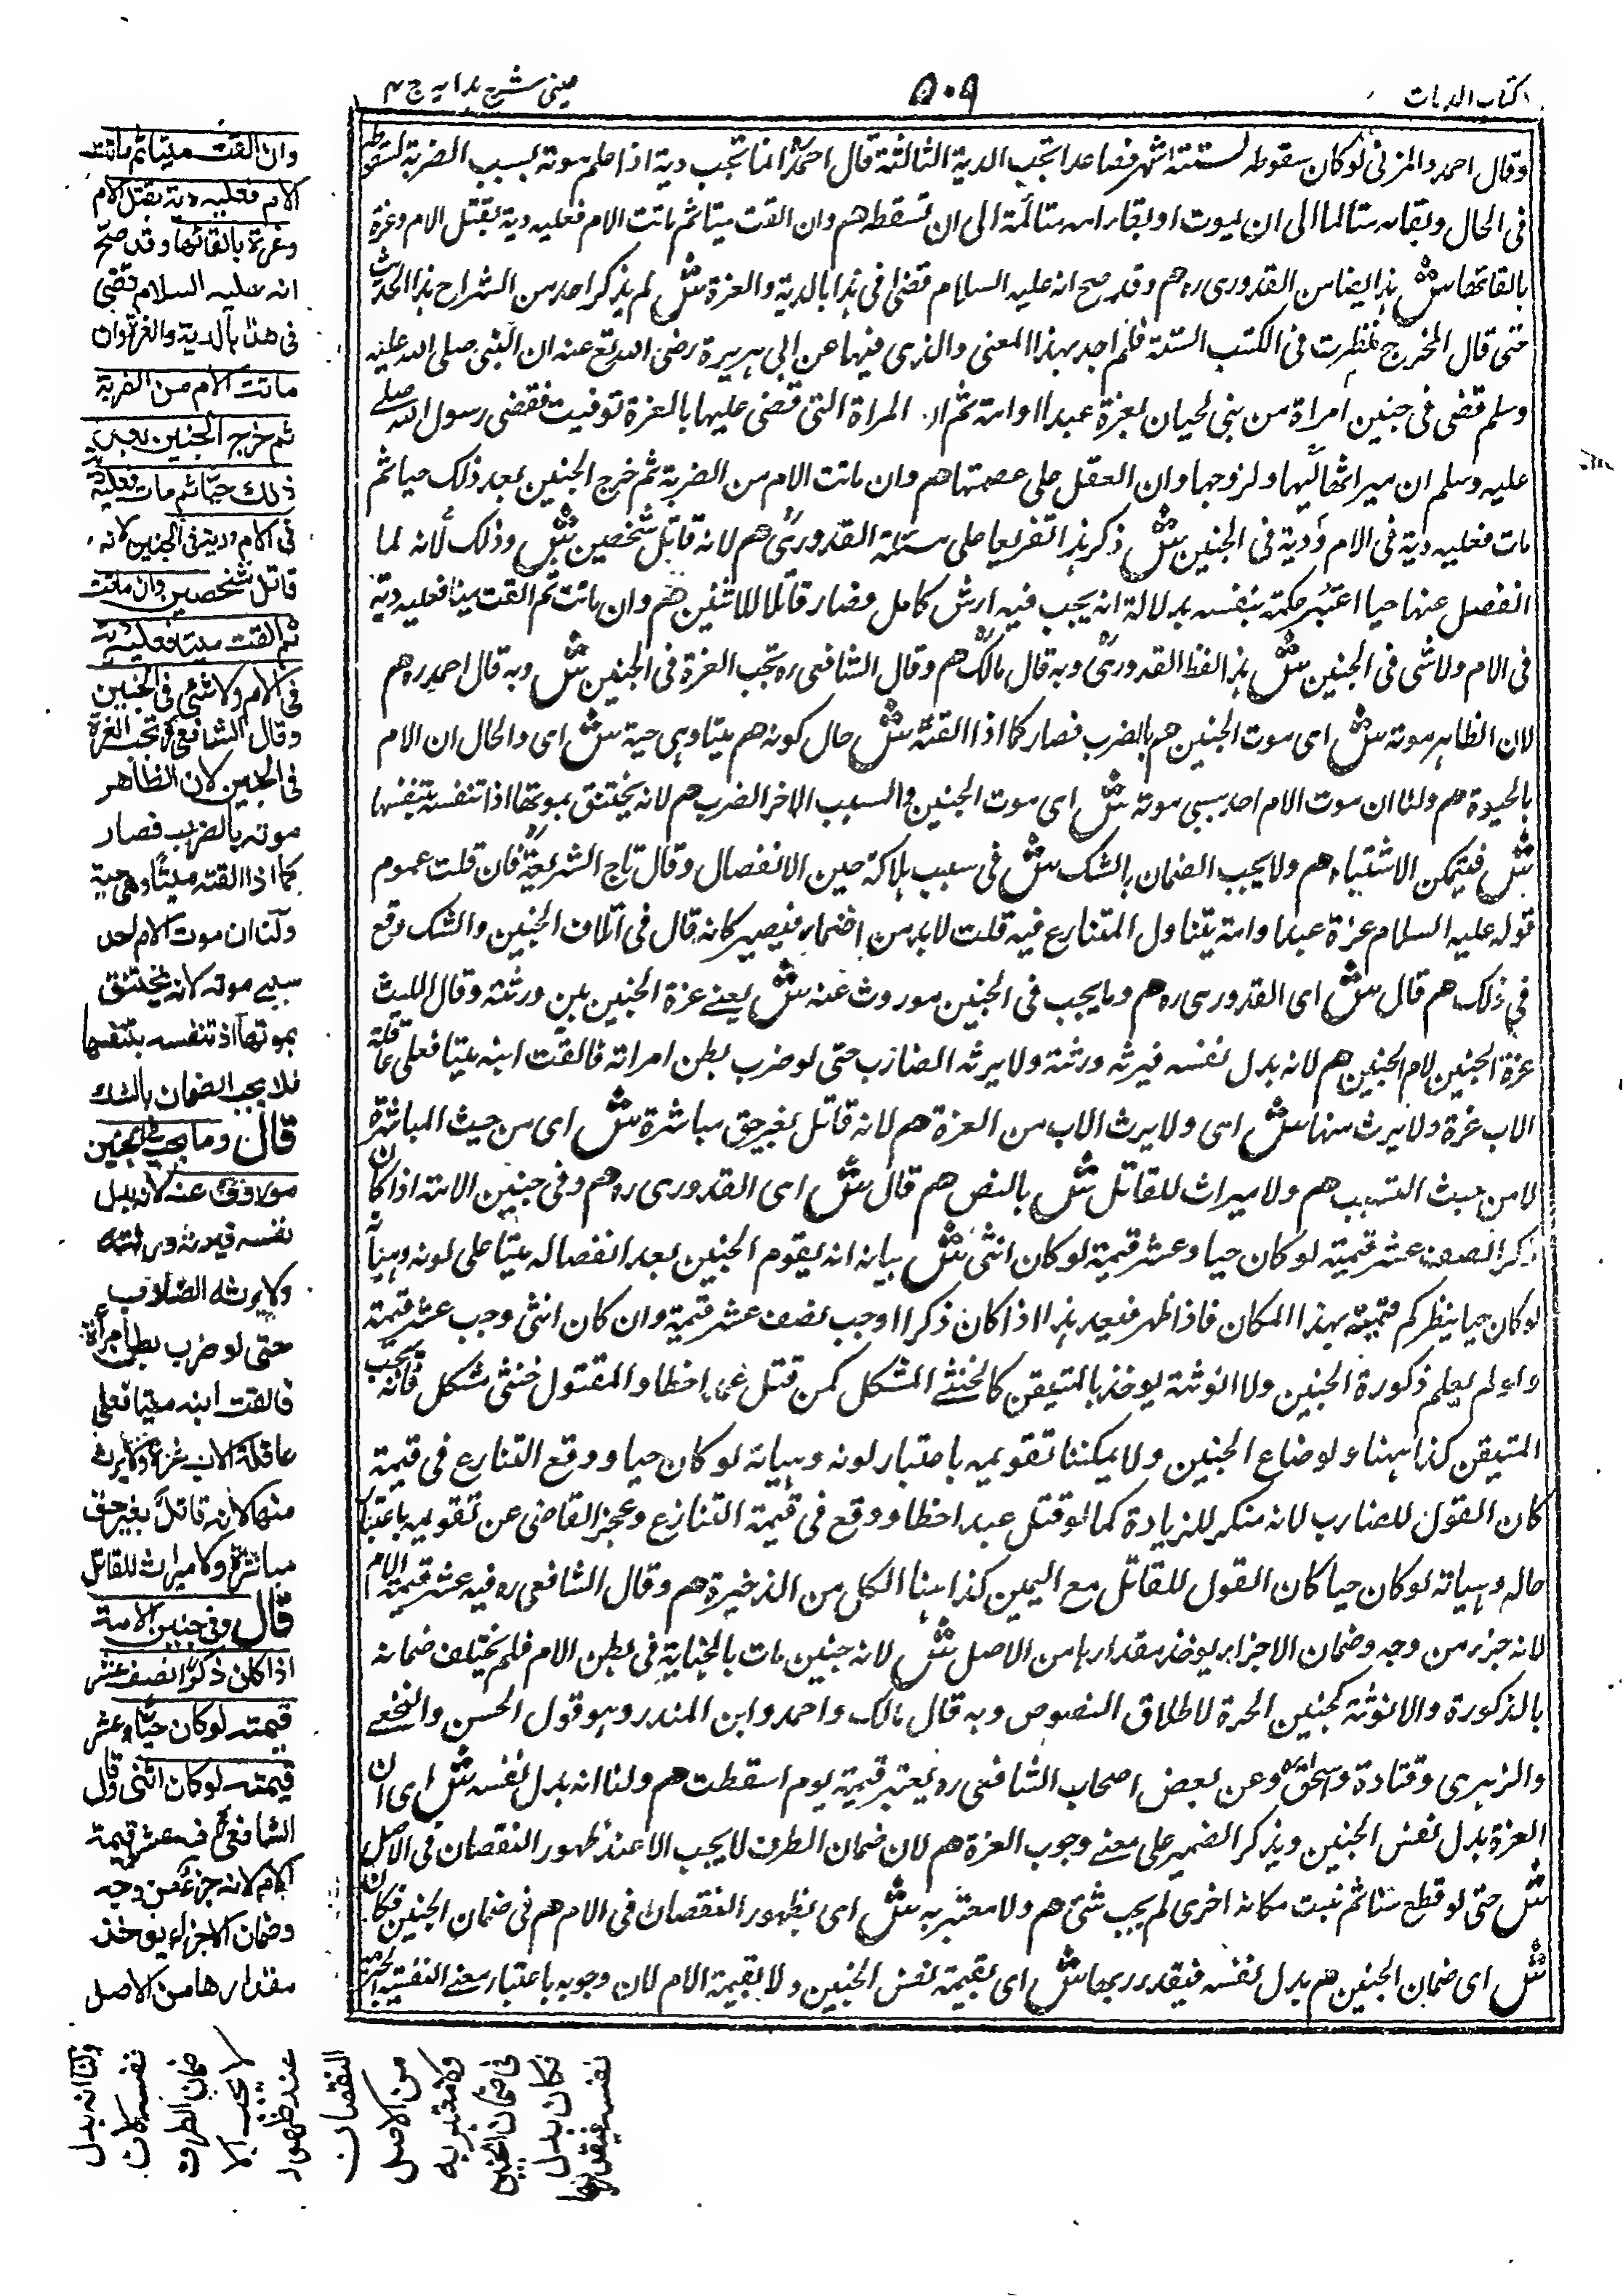 کتاب الدیات
۵۰۹
عینی شرح ہدایہ ج ۴
وقال احمد والمزنی لو کان سقوطہ لستتہ اشہر فصاعدا تجب الدیۃ الثالثۃ قال احمد انما تجب دیۃ اذا علم موتہ بسبب الضربۃ لسقوطہ
فی الحال وبقائہ متالما الی ان یموت او بقاء امہ متالمۃ الی ان تسقطہ ھم وان القت میتا ثم ماتت الام فعلیہ دیۃ بقتل الام وغرۃ
بالقائھا ش ہذا ایضا من القدوری رہ ھم وقد صح انہ علیہ السلام قضی فی ہذا بالدیۃ والغرۃ ش لم یذکر احد من الشراح ہذا الحدیث
حتی قال المخرج نظرت فی الکتب الستۃ فلم اجد بہذا المعنی والذی فیہا عن ابی ہریرۃ رضی اللہ تع عنہ ان النبی صلی اللہ علیہ
وسلم قضی فی جنین امراۃ من بنی لحیان بغرۃ عبد او امۃ ثم ان المراۃ التی قضی علیہا بالغرۃ توفیت فقضی رسول اللہ صلی
علیہ وسلم ان میراثھا لبنیہا ولزوجہا وان العقل علی عصبتہا ھم وان ماتت الام من الضربۃ ثم خرج الجنین بعد ذلک حیا ثم
مات فعلیہ دیۃ فی الام ودیۃ فی الجنین ش ذکر ہذا تفریعا علی مسئلۃ القدوری ھم لانہ قاتل شخصین ش وذلک لانہ لما
انفصل عنہا حیا اعتبر حکمہ بنفسہ بدلالۃ انہ یجب فیہ ارش کامل فصار قاتلا للاثنین ھم وان ماتت ثم القت میتا فعلیہ دیۃ
فی الام ولا شی فی الجنین ش ہذا لفظ القدوری وبہ قال مالک ھم وقال الشافعی رہ تجب الغرۃ فی الجنین ش وبہ قال احمد رہ ھم
لان الظاہر موتہ ش ای موت الجنین ھم بالضرب فصار کما اذا القتہ ش حال کونہ ھم میتا وہی حیۃ ش ای والحال ان الام
بالحیوۃ ھم ولنا ان موت الام احد سببی موتہ ش ای موت الجنین والسبب الاخر الضرب ھم لانہ یختنق بموتھا اذا تنفسہ بتنفسہا
ش فیتمکن الاشتباہ ھم ولا یجب الضمان بالشک ش فی سبب ہلاکہ حین الانفصال وقال تاج الشریعۃ فان قلت عموم
قولہ علیہ السلام غرۃ عبد او امۃ یتناول المتنازع فیہ قلت لا بد من اضمار فیصیر کانہ قال فی اتلاف الجنین والشک وقع
فی ذلک ھم قال ش ای القدوری رہ ھم وما یجب فی الجنین موروث عنہ ش یعنے غرۃ الجنین بین ورثتہ وقال اللیث
غرۃ الجنین لام الجنین ھم لانہ بدل نفسہ فیرثہ ورثتہ ولا یرثہ الضارب حتی لو ضرب بطن امراتہ فالقت ابنہ میتا فعلی عاقلۃ
الاب غرۃ ولا یرث منہا ش ای ولا یرث الاب من الغرۃ ھم لانہ قاتل بغیر حق مباشرۃ ش ای من حیث المباشرۃ
لا من حیث التسبب ھم ولا میراث للقاتل ش بالنص ھم قال ش ای القدوری رہ ھم وفی جنین الامۃ اذا کان
ذکرا نصف عشر قیمتہ لو کان حیا وعشر قیمتہ لو کان انثی ش بیانہ انہ یقوم الجنین بعد انفصالہ میتا علی لونہ وہیأتہ
لو کان حیا ینظر کم قیمتہ بہذا المکان فاذا ظہر فبعد ہذا اذا کان ذکرا اوجب نصف عشر قیمتہ وان کان انثی وجب عشر قیمتہ
ولو لم یعلم ذکورۃ الجنین ولا انوثتہ یوخذ بالمتیقن کالخنثے المشکل کمن قتل عبدا خطا والمقتول خنثی مشکل فانہ یجب
المتیقن کذا ہہنا ولو ضاع الجنین ولا یمکننا تقویمہ باعتبار لونہ وہیاتہ لو کان حیا ووقع التنازع فی قیمتہ
کان القول للضارب لانہ منکر للزیادۃ کما لو قتل عبدا خطا ووقع فی قیمتہ التنازع وعجز القاضی عن تقویمہ باعتبار
حالہ وہیاتہ لو کان حیا کان القول للقاتل مع الیمین کذا ہہنا الکل من الذخیرۃ ھم وقال الشافعی رہ فیہ عشر قیمۃ الام
لانہ جزء من وجہ وضمان الاجزاء یوخذ مقدارہا من الاصل ش لانہ جنین مات بالجنایۃ فی بطن الام فلم یختلف ضمانہ
بالذکورۃ والانوثۃ کجنین الحرۃ لاطلاق النصوص وبہ قال مالک واحمد وابن المنذر وہو قول الحسن والنخعے
والزہری وقتادۃ واسحق وعن بعض اصحاب الشافعی رہ یعتبر قیمۃ یوم اسقطت ھم ولنا انہ بدل نفسہ ش ای ان
الغرۃ بدل نفس الجنین ویذکر الضمیر علی معنے وجوب الغرۃ ھم لان ضمان الطرف لا یجب الا عند ظہور النقصان فی الاصل
ش حتی لو قطع سنا ثم نبت مکانہ اخری لم یجب شئ ھم ولا معتبر بہ ش ای بظہور النقصان فی الام ھم فی ضمان الجنین فکان
ش ای ضمان الجنین ھم بدل نفسہ فیقدر بھا ش ای بقیمۃ نفس الجنین ولا بقیمۃ الام لان وجوبہ باعتبار معنے النفسیۃ
وان القت میتا ثم ماتت
الام فعلیہ دیۃ بقتل الام
وغرۃ بالقائھا وقد صح
انہ علیہ السلام قضی
فی ھذا بالدیۃ والغرۃ وان
ماتت الام من الضربۃ
ثم خرج الجنین بعد
ذلك حیا ثم مات فعلیہ دیۃ
فی الام ودیۃ فی الجنین لانہ
قاتل شخصین وان ماتت
ثم القت میتا فعلیہ دیۃ
فی الام ولا شئ فی الجنین
وقال الشافعی تجب الغرۃ
فی الجنین لان الظاھر
موتہ بالضرب فصار
کما اذا القتہ میتا وھی حیۃ
ولنا ان موت الام احد
سببے موتہ لانہ یختنق
بموتھا اذ تنفسہ بتنفسھا
فلا یجب الضمان بالشك
قال وما یجب فی الجنین
موروث عنہ لانہ بدل
نفسہ فیرثہ ورثتہ
ولا یرثہ الضارب
حتی لو ضرب بطن امرأتہ
فالقت ابنہ میتا فعلی
عاقلۃ الاب غرۃ ولا یرث
منھا لانہ قاتل بغیر حق
مباشرۃ ولا میراث للقاتل
قال وفی جنین الامۃ
اذا کان ذکرا نصف عشر
قیمتہ لو کان حیا وعشر
قیمتہ لو کان انثی وقال
الشافعی فیہ عشر قیمۃ
الام لانہ جزء من وجہ
وضمان الاجزاء یوخذ
مقدارھا من الاصل
ولنا انہ بدل
نفسہ لان
ضمان الطرف
لا یجب الا
عند ظھور
النقصان
من الاصل
ولا معتبر بہ
فی ضمان الجنین
فکان بدل
نفسہ فیقدر بھا